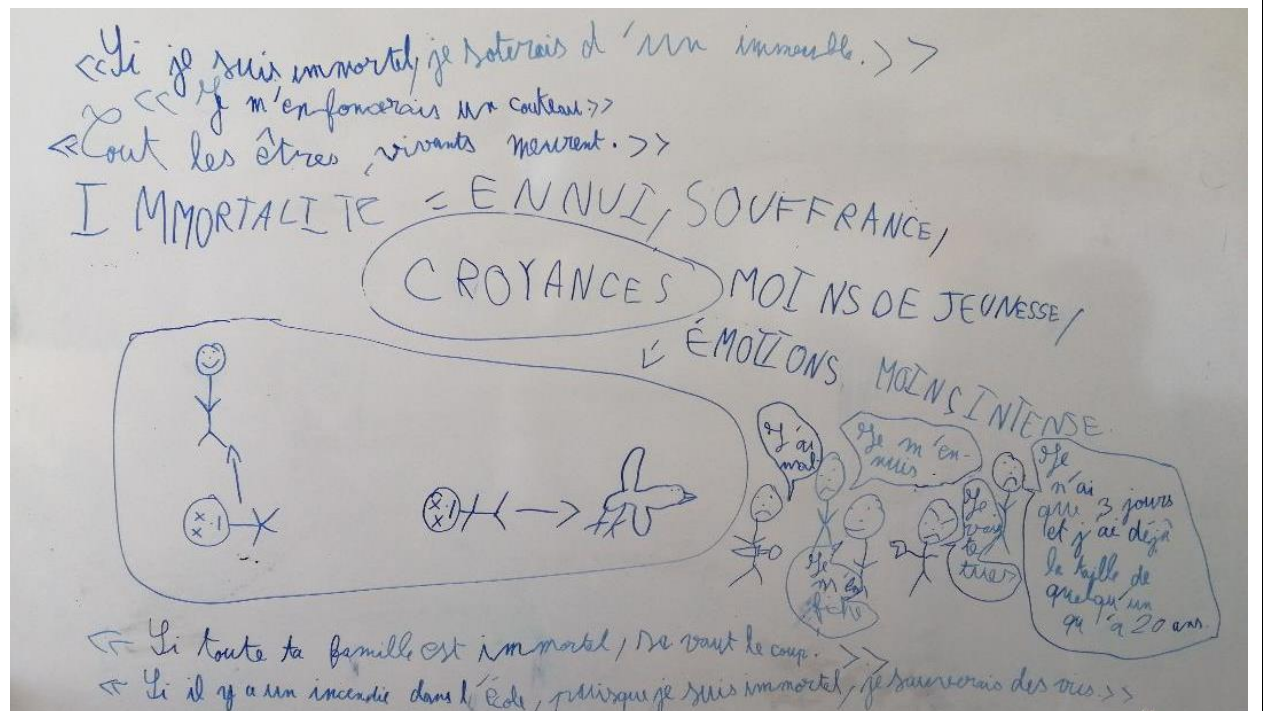 <<Si je suis immortel, je soterais d'un immeuble.>>
<<Je m'enfoncerais un couteau>>
<<Tout les êtres vivants meurent.>>
IMMORTALITÉ = ENNUI, SOUFFRANCE,
CROYANCES MOINS DE JEUNESSE,
ÉMOTIONS MOINS INTENSE.
J'ai
mal
Je m'en-
nuis
Je
m'en
fiche
Je
vais
te
tuer
Je
n'ai
que 3 jours
et j'ai déjà
la taille de
quelqu'un
qu'a 20 ans.
<<Si toute ta famille est immortel, sa vaut le coup.>>
<<Si il y a un incendie dans l'école, puisque je suis immortel, je sauverais des vies.>>